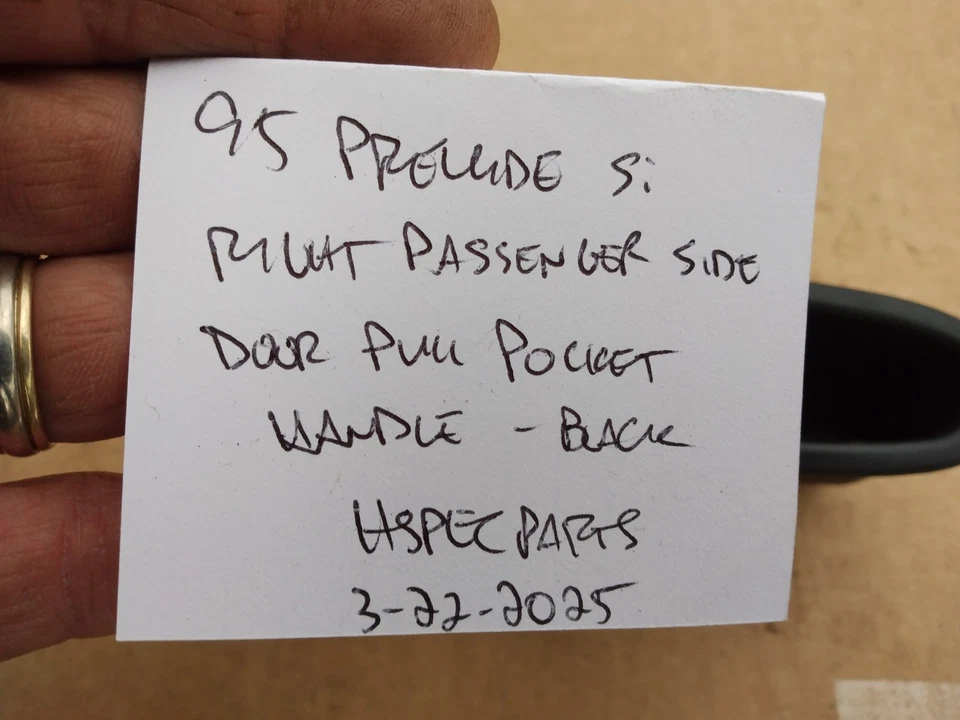 95 PRELUDE Si
RIGHT PASSENGER SIDE
DOOR PULL POCKET
HANDLE - BLACK
HSPECPARTS
3-22-2025